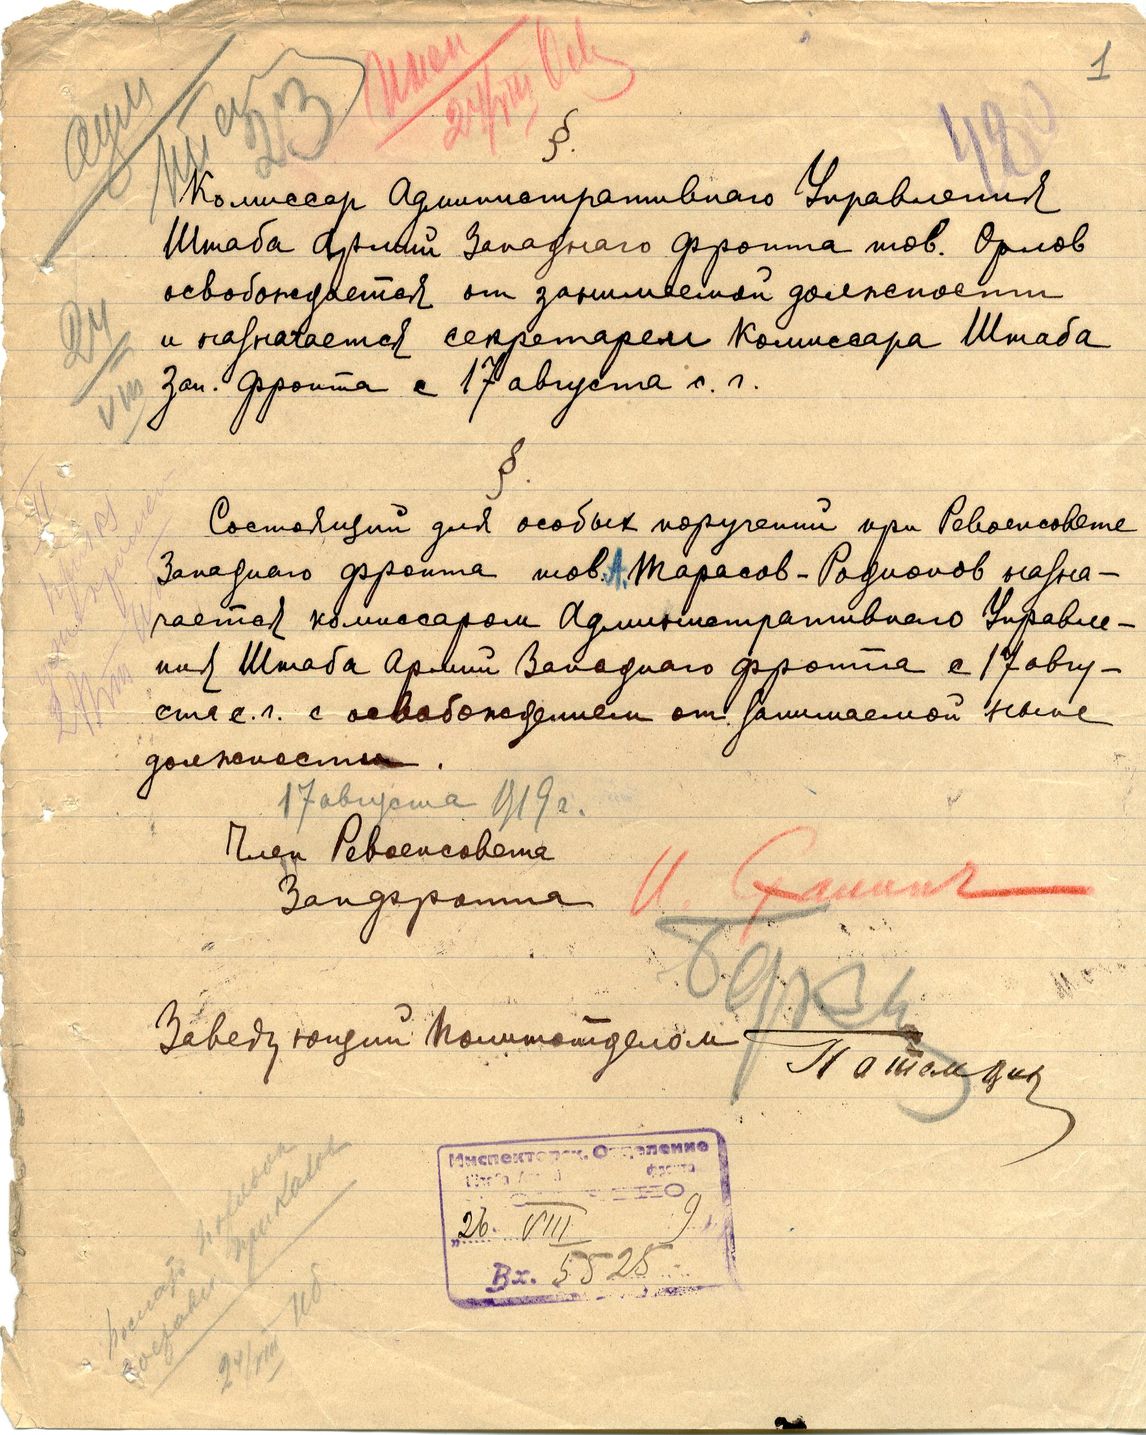 1
24/VIII
480
23
§.
Комиссар Административнаго Управления
Штаба Армий Западнаго фронта тов. Орлов
освобождается от занимаемой должности
и назначается секретарем Комиссара Штаба
Зап. фронта с 17 августа с. г.
24
VIII
§.
Состоящий для особых поручений при Ревоенсовете
Западнаго фронта тов. А. Тарасов-Родионов назна-
чается комиссаром Административнаго Управле-
ния Штаба Армий Западнаго фронта с 17 авгу-
ста с. г. с освобождением от занимаемой ныне
должности.
17 августа 1919 г.
Член Ревоенсовета
Запфронта И. Сталин
Заведующий Политотделом
Инспекторск. Отделение
Штаба фронта
„26. VIII 9
Вх. 5525
приказов
24/VIII